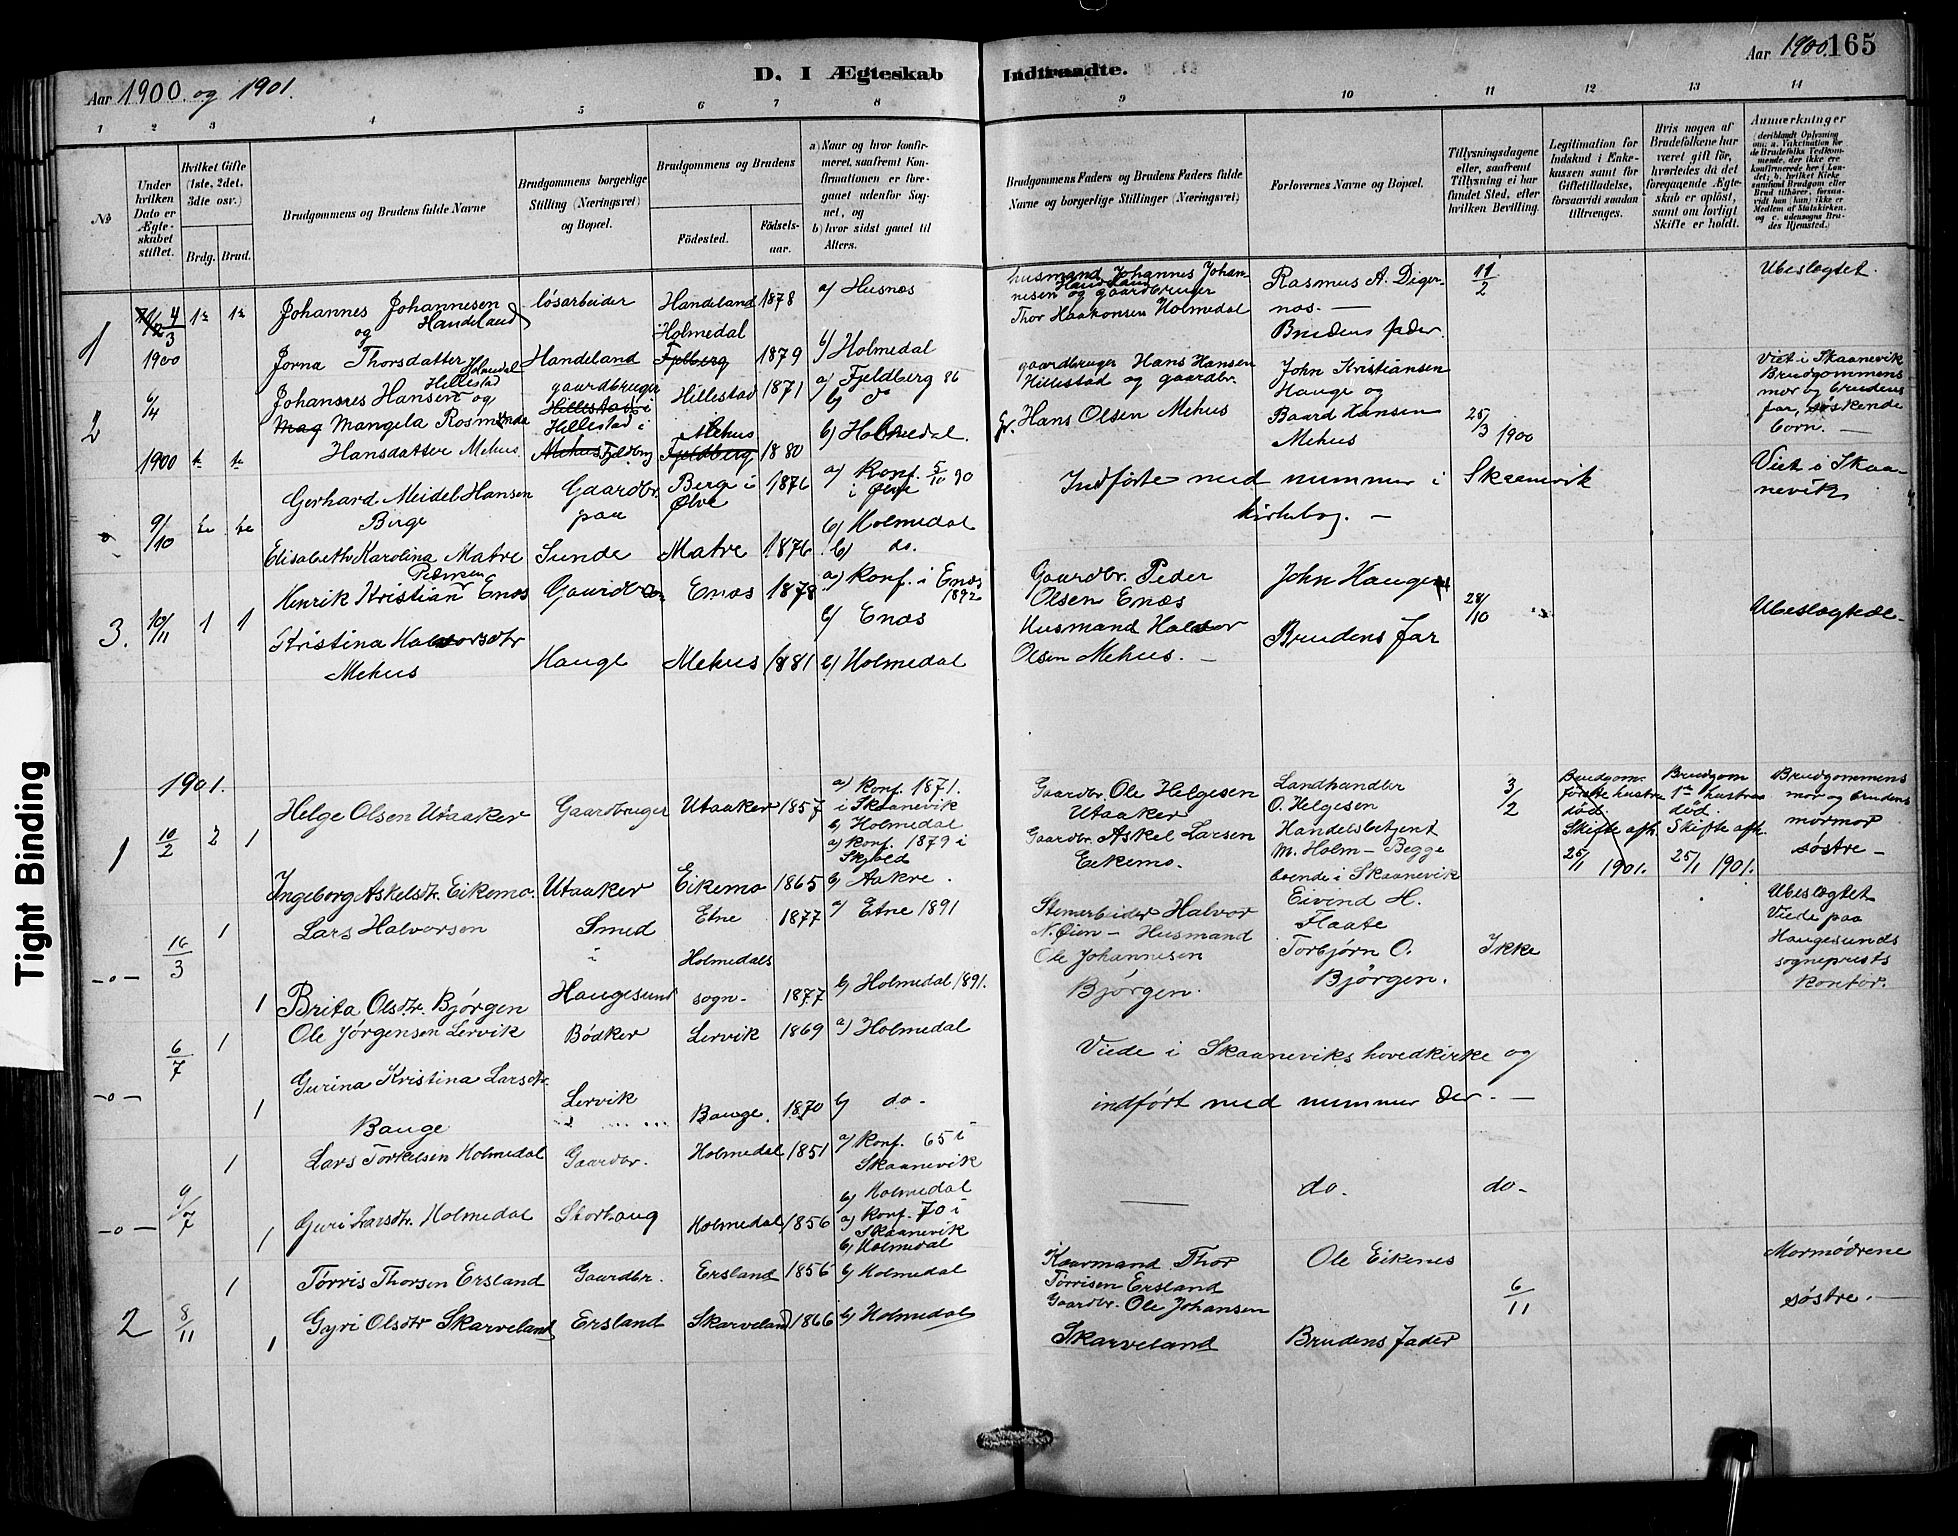 Aar 1900 og 1901.
D. I Ægteskab Indtraadte.
Aar 1900. 165
1 2 3 4 5 6 7 8 9 10 11 12 13 14
No
Under hvilken Dato er Ægteskabet stiftet.
Hvilket Gifte (1ste, 2det, 3dte osv.)
Brdg. Brud.
Brudgommens og Brudens fulde Navne
Brudgommens borgerlige Stilling (Næringsvei) og Bopæl.
Brudgommens og Brudens
Födested. Födselsaar.
a) Naar og hvor konfirmeret, saafremt Konfirmationen er foregaaet udenfor Sognet, og
b) hvor sidst gaaet til Alters.
Brudgommens Faders og Brudens Faders fulde Navne og borgerlige Stillinger (Næringsvei)
Forlovernes Navne og Bopæl.
Tillysningsdagene eller, saafremt Tillysning ei har fundet Sted, efter hvilken Bevilling.
Legitimation for Indskud i Enkekassen samt for Giftetilladelse, forsaavidt saadan tiltrænges.
Hvis nogen af Brudefolkene har været gift för, hvorledes da det foregaaende Ægteskab er oplöst, samt om lovligt Skifte er holdt.
Anmærkninger
(deriblandt Oplysning om: a. Vakcination for de Brudefolks Vedkommende, der ikke ere konfirmerede her i Landet; b. hvilket Kirkesamfund Brudgom eller Brud tilhörer, forsaavidt han (hun) ikke er Medlem af Statskirken, og c. udensogns Brudes Hjemsted.)
1 4/3 1900 1ste 1ste
Johannes Johannesen Handeland og
Jorna Thorsdatter Holmedal
løsarbeider Handeland
Handeland 1878
Holmedal Fjelberg 1879
a) Husnæs
b) Holmedal
husmand Johannes Johannesen Handeland og gaardbruger
Thor Haakonsen Holmedal
Rasmus A. Digernæs. —
Brudens fader.
11/2
Ubeslegtet.
2 6/4 1900
Johannes Hansen Hillestad og
Mag Mangela Rosminda
Hansdatter Mehus.
gaardbruger
Hillestad i
Hillestad i
Mehus Fjeldberg
Hillestad 1871
Mehus
Fjeldberg 1880
a) Fjeldberg 86
b) do
b) Holmedal.
gaardbruger Hans Hansen
Hillestad og gaardbr.
Gr. Hans Olsen Mehus
John Kristiansen
Hauge og
Baard Hansen
Mehus
25/3 1900
Viet i Skaanevik
Brudgommens
mor og brudens
far, søskende
børn. —
9/10
Gerhard Meidel Hansen
Berge
Elisabeth Karolina Matre
Gaardbr.
paa
Sunde
Berge i
Ølve 1876
Matre 1876
a) Konf. 5/10 90
i Ølve
b) Holmedal
b) do.
Indførte med nummer i Skaanevik
kirkebog. —
Viet i Skaanevik
3. 10/11 1 1
Henrik Kristian Pedersen Enæs
Kristina Halvorsdtr
Mehus
Gaardbr.
Hauge
Enæs 1878
Mehus 1881
a) Konf. i Enæs
1892
b) Enæs
b) Holmedal
Gaardbr. Peder
Olsen Enæs
Husmand Halvor
Olsen Mehus. —
John Hauge
Brudens far
28/10
Ubeslegtede
1901.
1 10/2 2 1
Helge Olsen Utaaker
Ingeborg Askelsdtr. Eikemo.
Gaardbruger
Utaaker
Utaaker 1857
Eikemo 1865
a) Konf. 1871.
i Skaanevik
b) Holmedal
a) Konf. 1879 i
Skjold
b) Aakre.
Gaardbr. Ole Helgesen
Utaaker
Gaardbr. Askel Larsen
Eikemo.
Landhandler
O. Helgesen
Handelsbetjent
M. Holm — Begge
boende i Skaanevik
3/2
Brudgom.
første hustru
død.
Skifte afh.
25/1 1901.
Brudgom
1ste hustru
død.
Skifte afh.
25/1 1901.
Brudgommens
mor og brudens
mormor
søstre —
—o— 16/3 1 1
Lars Halvorsen
Brita Olsdtr. Bjørgen
Smed
i
Haugesund
Etne 1877
Holmedals
sogn. 1877
a) Etne 1891
b) Holmedal 1891.
Stenarbeider Halvor
N. Øien — Husmand
Ole Johannesen
Bjørgen.
Eivind H.
Flaate
Torbjørn O.
Bjørgen.
Ikke
Ubeslegtet
Viede paa
Haugesunds
sogneprests
kontor.
—o— 6/7 1 1
Ole Jørgensen Lervik
Gurina Kristina Larsdtr.
Bauge
Bødker
Lervik
Lervik 1869
Bauge. 1870
a) Holmedal
b) do.
Viede i Skaaneviks hovedkirke og
indført med nummer der. —
—o— 9/7 1 1
Lars Torkelsen Holmedal
Guri Larsdtr. Holmedal
Gaardbr.
Storhaug
Holmedal 1851
Holmedal 1856
a) Konf. 65 i
Skaanevik
b) Holmedal
a) Konf. 70 i
Skaanevik
b) Holmedal
— do. do.
2 8/11 1 1
Tørris Thorsen Ersland
Gyri Olsdtr Skarveland
Gaardbr.
Ersland
Ersland 1856
Skarveland 1866
b) Holmedal
b) Holmedal
Kaarmand Thor
Tørrisen Ersland
Gaardbr. Ole Johansen
Skarveland
Ole Eikenes
Brudens Fader
6/11
Mormødrene
søstre. —
Tight Binding